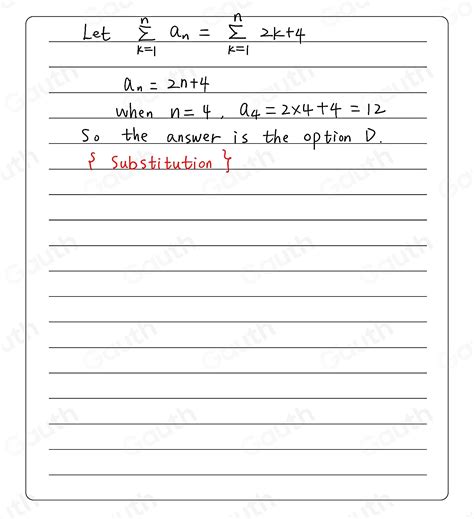 Let \sum_{k=1}^{n} a_n = \sum_{k=1}^{n} 2k+4
a_n = 2n+4
when n=4, a_4 = 2×4+4 = 12
So the answer is the option D.
{ Substitution }
Gauth